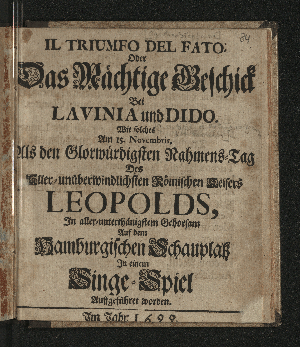 84
IL TRIUMFO DEL FATO:
Oder
Das Mächtige Geschick
Bei
LAVINIA und DIDO.
Wie solches
Am 15. Novembris,
Als den Glorwürdigsten Nahmens-Tag
Des
Aller-unüberwindlichsten Römischen Keisers
LEOPOLDS,
In aller-unterthänigstem Gehorsam
Auf dem
Hamburgischen Schauplatz
In einem
Singe-Spiel
Auffgeführet worden.
Im Jahr 1699.